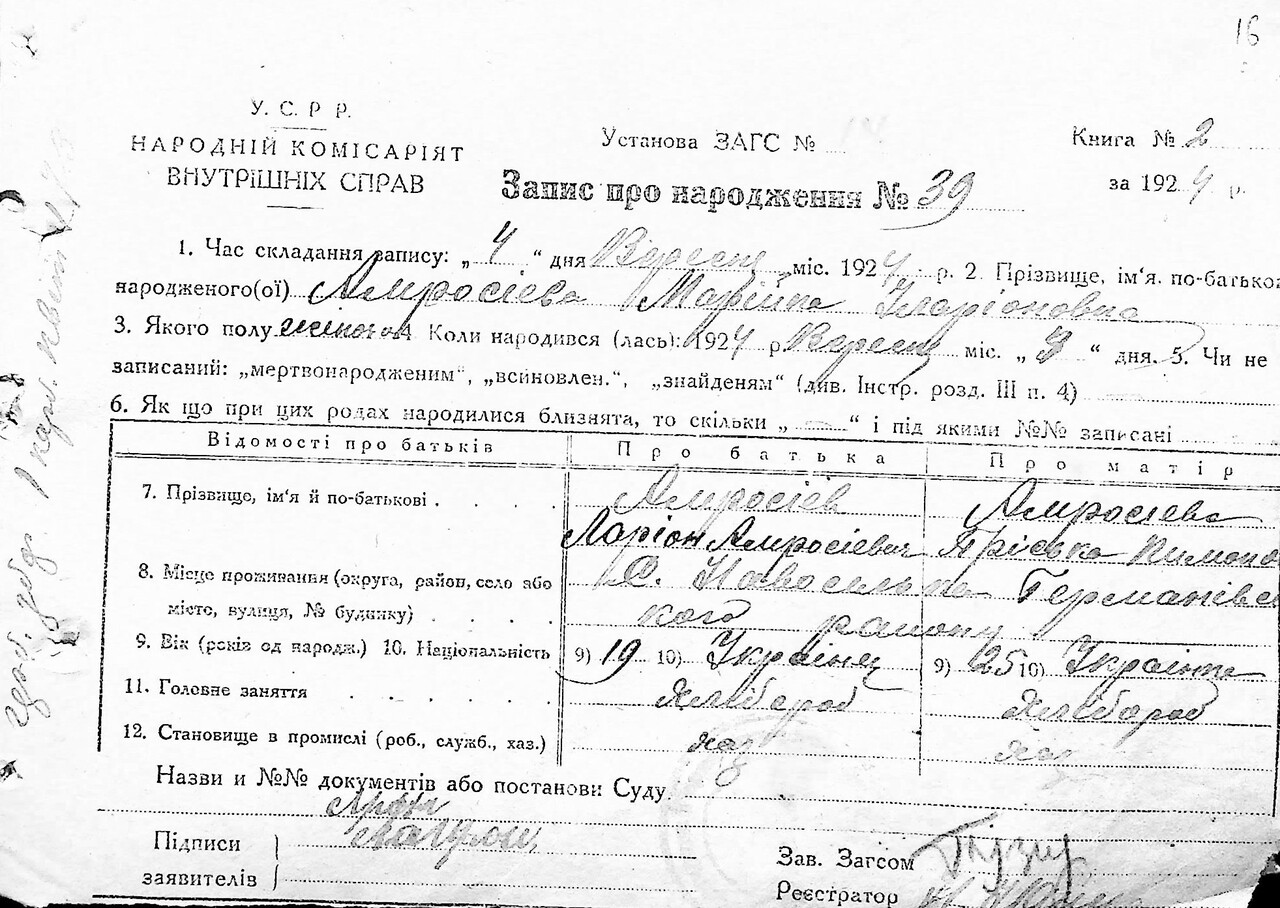 16
У. С. Р Р.
НАРОДНІЙ КОМІСАРІЯТ
ВНУТРІШНІХ СПРАВ
Установа ЗАГС №
Книга № 2
Запис про народження № 39
за 1924 р.
1. Час складання запису: „ 4 “ дня Вересня міс. 1924 р. 2. Прізвище, ім'я. по-батьков
народженого(ої) Амросієва Марійка Іларіоновна
3. Якого полу жіночого 4 Коли народився (лась): 1924 р Вересня міс. „ 3 “ дня. 5. Чи не
записаний: „мертвонародженим“, „всиновлен.“, „знайденям“ (див. Інстр. розд. III п. 4)
6. Як що при цих родах народилися близнята, то скільки „ — “ і під якими №№ записані
Відомості про батьків
Про батька
Про матір
7. Прізвище, ім'я й по-батькові
Амросієв
Амросієва
Ларіон Амросієвич
Пріська
8. Місце проживання (округа, район, село або
місто, вулиця, № будинку)
С. Новосілка Германівсь
кого району
9. Вік (років од народж.) 10. Національність
9) 19 10) Українець
9) 25 10) Українка
11. Головне заняття
Хлібороб
Хлібороб
12. Становище в промислі (роб., служб., хаз.)
хаз
хаз
Назви и №№ документів або постанови Суду
Підписи
заявителів
Зав. Загсом
Реєстратор